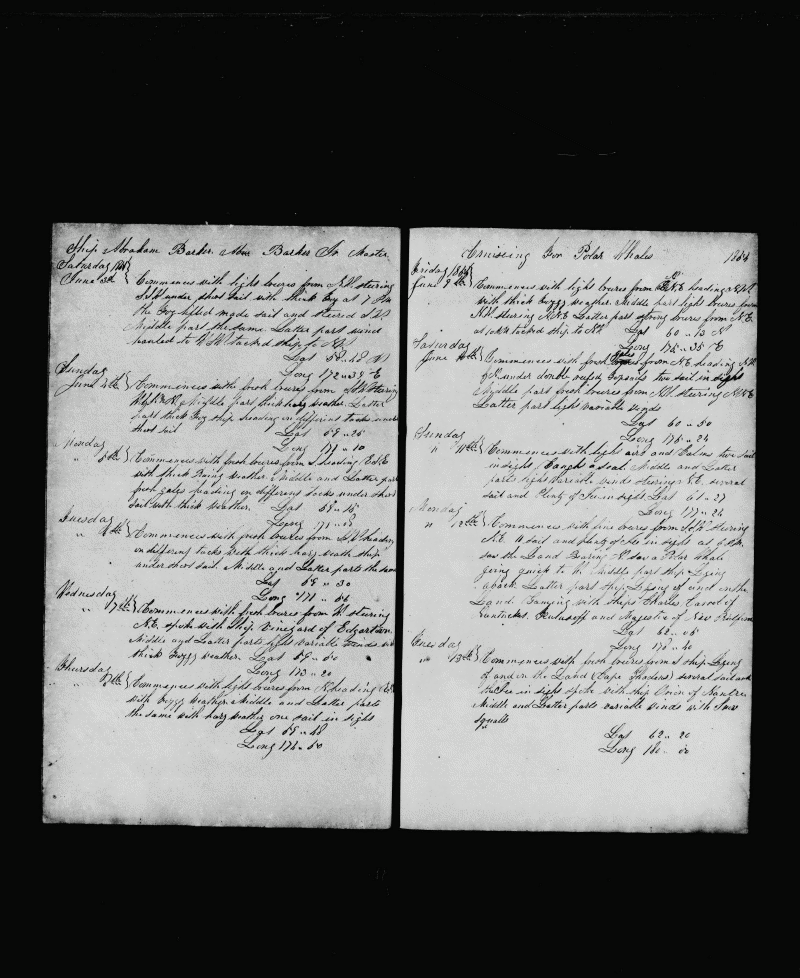 Ship Abraham Barker. Abm Barker Jr Master
Saturday
June 3rd } Commences with light breezes from N.W. steering
under short sail with thick fog at 7 PM
the fog lifted made sail and steered
Middle part the same. Latter part wind
hauled to tacked ship to
Lat 58 .. 48 N
Long 172 .. 39 E
Sunday
June 4th } Commences with fresh breezes from steering
Middle part thick hazy weather. Latter
part thick fog ship heading on different tacks under
short sail Lat 59 .. 25
Long 171 .. 10
Monday
" 5th } Commences with fresh breezes from heading E.S.E
with thick weather Middle and Latter part
fresh gales heading on different tacks under short
sail with thick weather. Lat 59 .. 15
Long 171 ..
Tuesday
" 6th } Commences with fresh breezes from heading
on different tacks with thick hazy weath ship
under short sail. Middle and Latter parts the same
Lat 59 .. 30
Long 171 ..
Wednesday
" 7th } Commences with fresh breezes from W. steering
N.E. spoke with ship Vineyard of Edgartown
Middle and Latter parts light variable winds with
thick foggy weather. Lat 59 .. 50
Long 173 .. 20
Thursday
" 8th } Commences with light breezes from heading
with foggy weather Middle and Latter parts
the same with hazy weather one sail in sight
Lat 59 .. 48
Long 172 .. 50
Cruiseing For Polar Whales 1854
Friday 1854
June 9th } Commences with light breezes from heading
with thick foggy weather. Middle part light breezes from
N.W. steering N.N.E Latter part strong breezes from N.E.
at tacked ship to
Lat 60 .. 13 N
Long 175 .. 35 E
Saturday
June 10th } Commences with fresh from N.E. heading
under double reefed topsails two sail in sight
Middle part fresh breezes from steering N.N.E
Latter part light variable winds
Lat 60 .. 50
Long 175 .. 24
Sunday
" 11th } Commences with light airs and Calms two sail
in sight Caught a seal Middle and Latter
parts light variable winds steering N.E. several
sail and Plenty of Ice in sight Lat 61 .. 27
Long 177 .. 24
Monday
" 12th } Commences with fine breezes from steering
N.E. sail and plenty of Ice in sight at 6 PM
saw the Land Bearing saw a Polar Whale
going quick to Middle part ship Lying
aback Latter part ship Lying of and on the
Land. Gamying with Ships Charles Carrol of
Nantucket. and Majestic of New Bedford
Lat 62 .. 05
Long 178 .. 40
Tuesday
" 13th } Commences with fresh breezes from ship Lying
of and on the Land (Cape Thadeus) several sail and
Ice in sight spoke with ship of Nantucket
Middle and Latter parts variable winds with Snow
squalls
Lat 62 .. 20
Long 180 .. 00